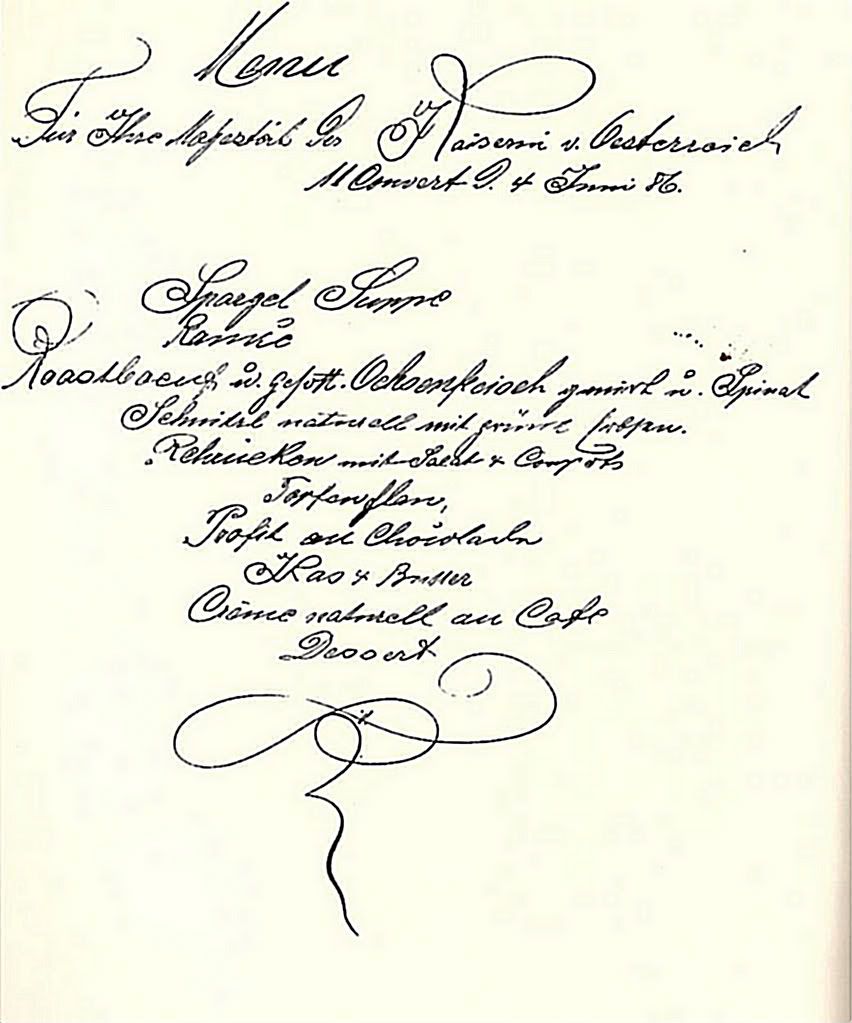 Menu
Für Ihre Majestät der Kaiserin v. Oesterreich
11 Couvert D. 4 Juni 86.
Spargel Suppe
Roastboeuf u. gesott. Ochsenfleisch u. Spinat
Schnitzl naturell mit grüne Erbsen.
Rehrücken mit Salat & Compots
Profit au Chocolade
Käs & Butter
Crême naturell au Cafe
Dessert